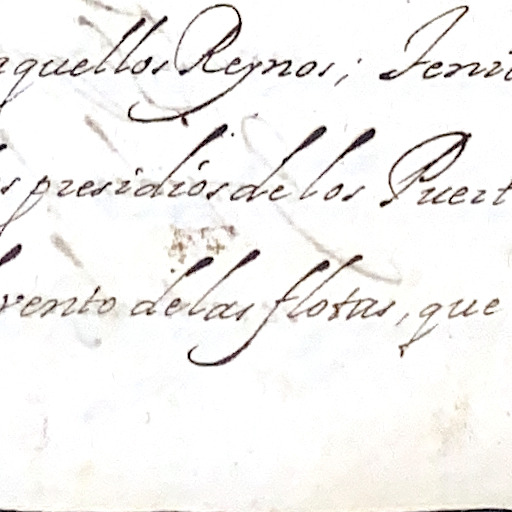 aquellos Reynos; Jeni
s presidios de los Puert
vento de las flotas, que